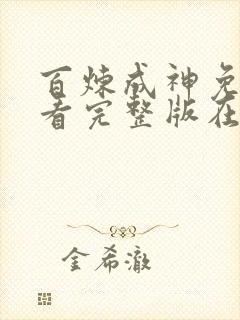 百炼成神免
看完整版在
金希澈